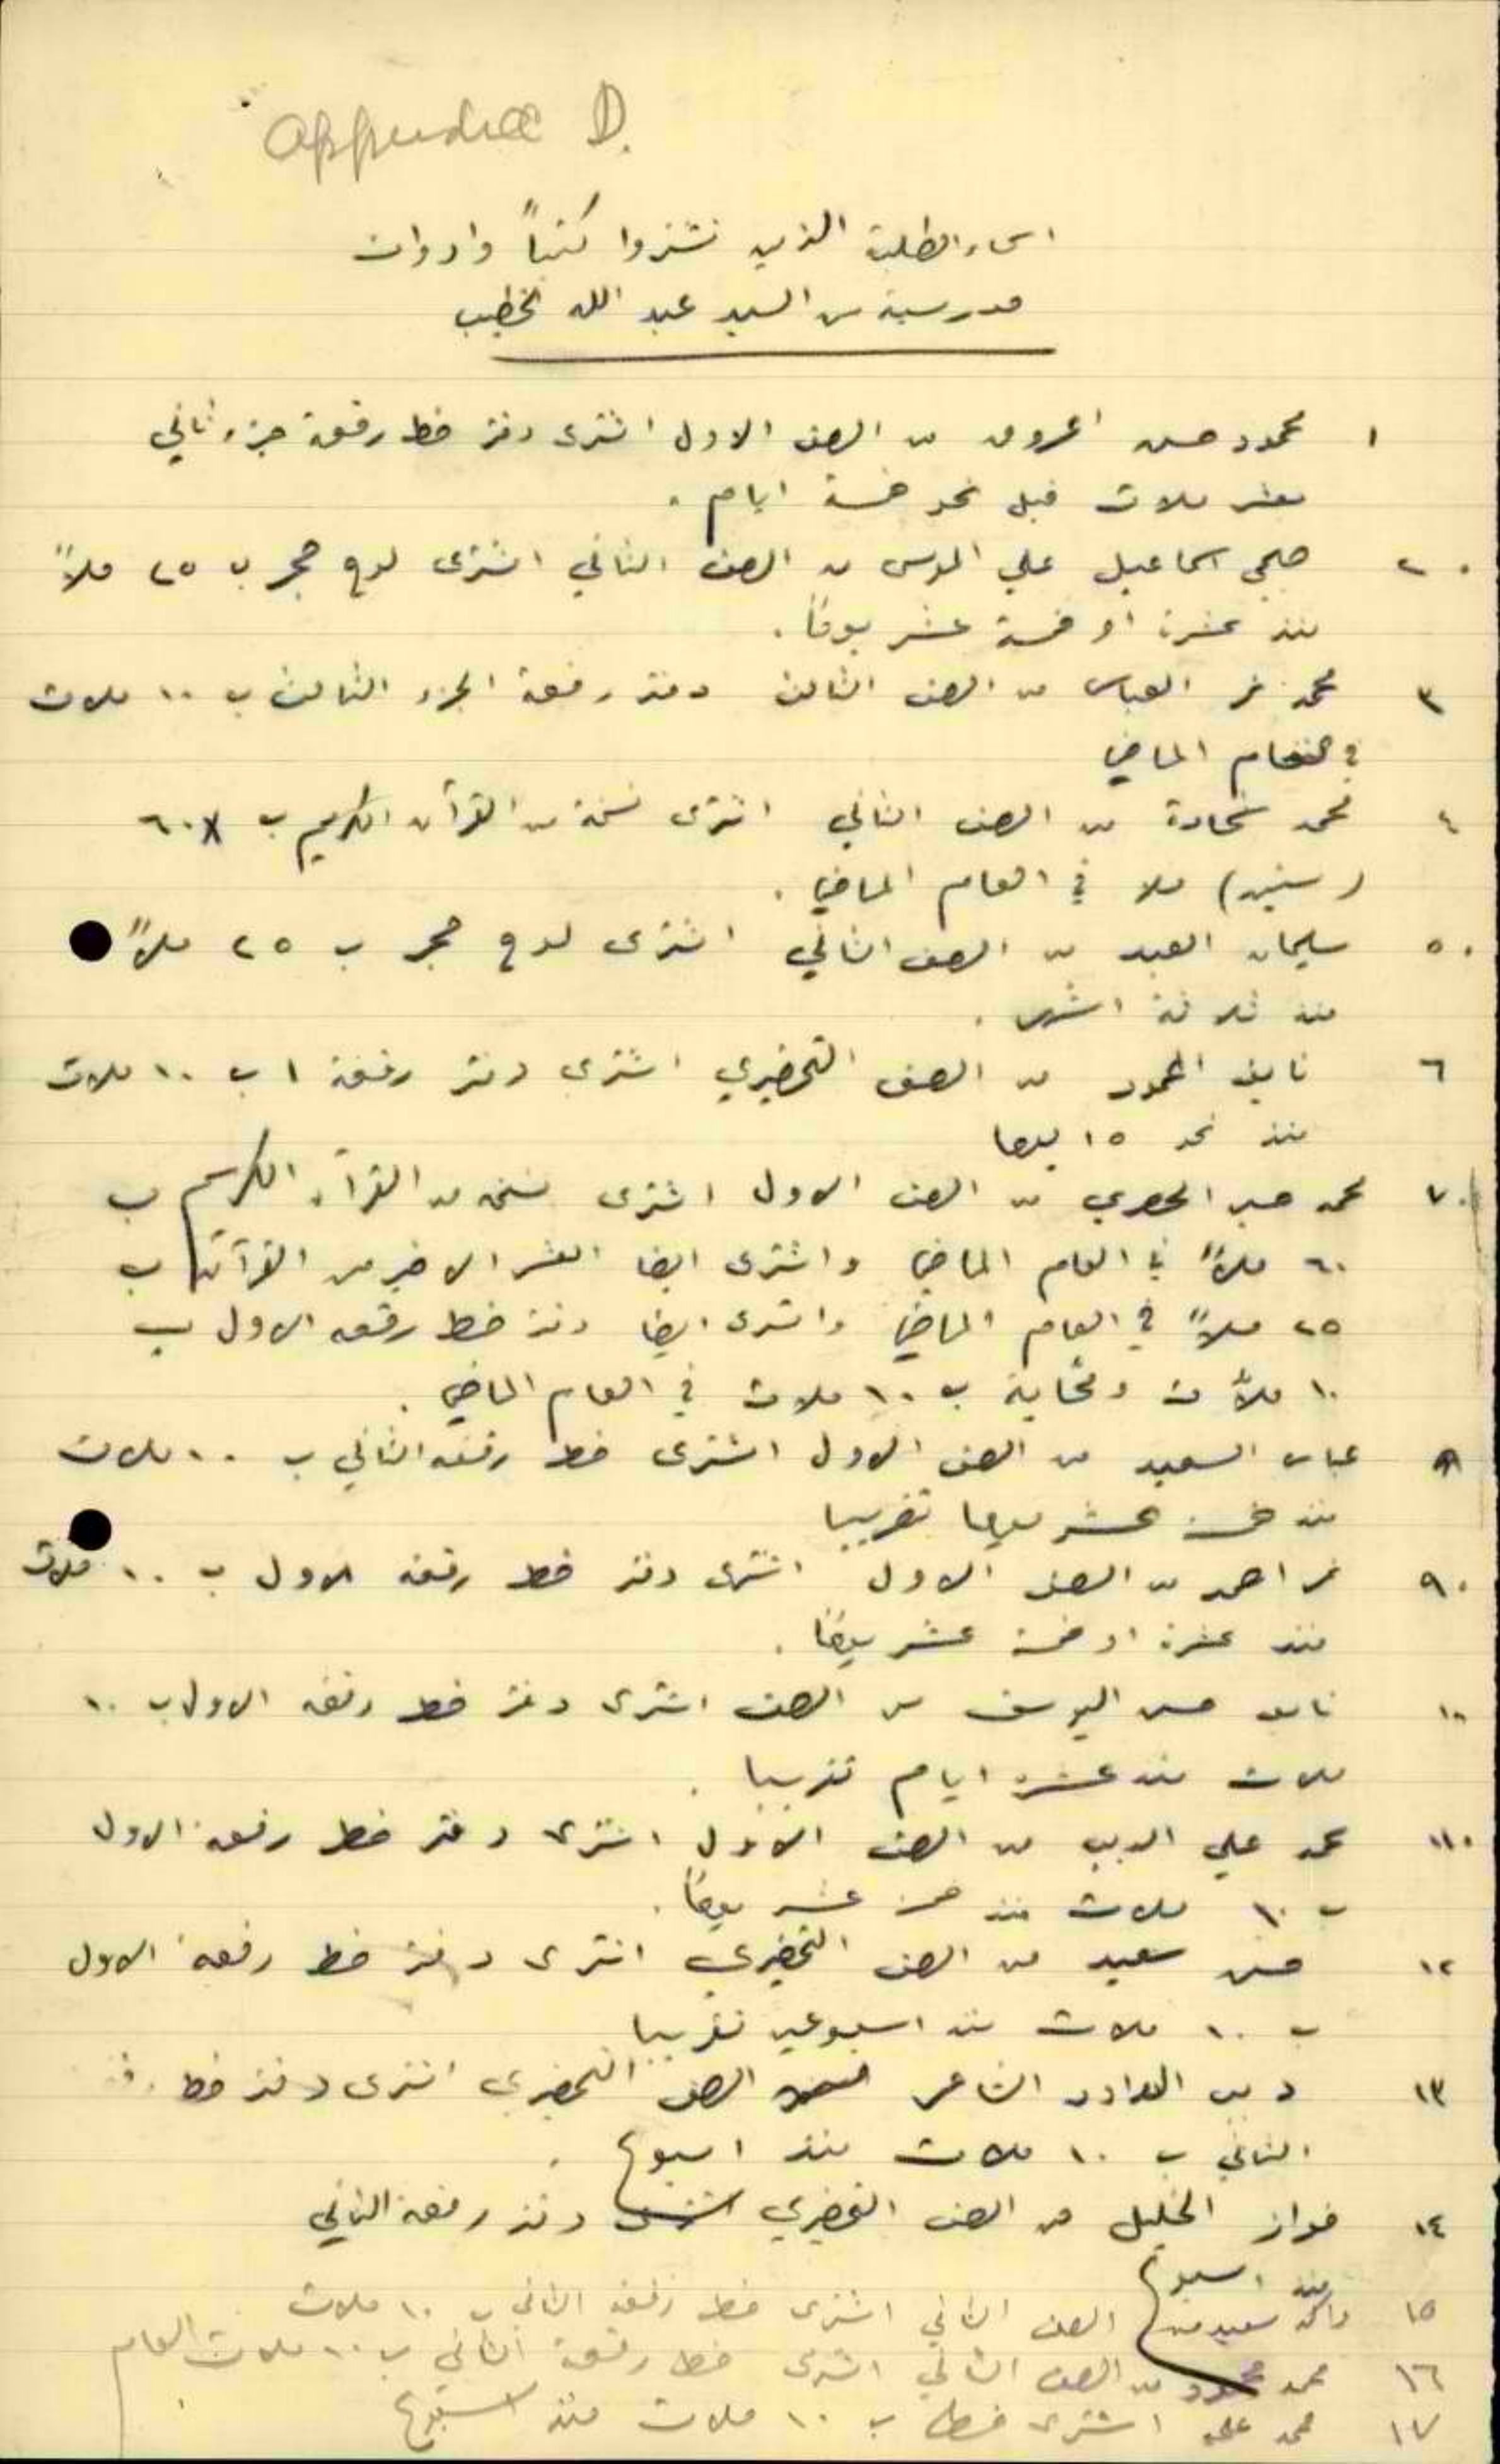 Appendix D.
اسماء الطلبة الذين اشتروا كتباً وادوات
مدرسية من السيد عبد الله الخطيب
١ محمود حسن من الصف الاول اشترى دفتر خط رقعة جزء ثاني
بعشر ملات قبل نحو خمسة ايام .
٢ صبحي اسماعيل علي الموسى من الصف الثاني اشترى لوح حجر ب ٢٥ ملاً
منذ عشرة او خمسة عشر يوماً .
٣ محمد نمر العباس من الصف الثالث دفتر رقعة الجزء الثالث ب ١٠ ملات
في العام الماضي
٤ محمد شحادة من الصف الثاني اشترى نسخة من القرآن الكريم ب ٦٠
(ستين) ملا في العام الماضي .
٥ سليمان العبد من الصف الثاني اشترى لوح حجر ب ٢٥ ملاً
منذ ثلاثة اشهر .
٦ نايف المحمود من الصف التحضيري اشترى دفتر رقعة ١ ب ١٠ ملات
منذ نحو ١٥ يوما
٧ محمد من الصف الاول اشترى نسخه من القرآن الكريم ب
٦٠ ملاً في العام الماضي واشترى ايضا العشر الاخير من القرآن ب
٢٥ ملاً في العام الماضي واشترى ايضا دفتر خط رقعه الاول ب
١٠ ملات ومحاية ب ١٠ ملات في العام الماضي .
٨ عباس السعيد من الصف الاول اشترى خط رقعه الثاني ب ١٠ ملات
منذ خمسة عشر يوما تقريبا
٩ نمر احمد من الصف الاول اشترى دفتر خط رقعه الاول ب ١٠ ملات
منذ عشرة او خمسة عشر يوماً .
١٠ نايف حسن اليوسف من الصف اشترى دفتر خط رقعه الاول ب ١٠
ملات منذ عشرة ايام تقريبا .
١١ محمد علي الديب من الصف الاول اشترى دفتر خط رقعه الاول
ب ١٠ ملات منذ خمسة عشر يوماً .
١٢ حسن سعيد من الصف التحضيري اشترى دفتر خط رقعه الاول
ب ١٠ ملات منذ اسبوعين تقريبا
١٣ ديب الشاعر الصف التحضيري اشترى دفتر خط
الثاني ب ١٠ ملات منذ اسبوع .
١٤ فواز الخليل من الصف التحضيري اشترى دفتر رقعة الثاني
منذ اسبوع
١٥ سعيد من الصف الثاني اشترى خط رقعة الثاني ب ١٠ ملات
١٦ محمد محمود من الصف الثاني اشترى خط رقعة الثاني ب ١٠ ملات العام
١٧ محمد علي اشترى خط ب ١٠ ملات منذ اسبوع